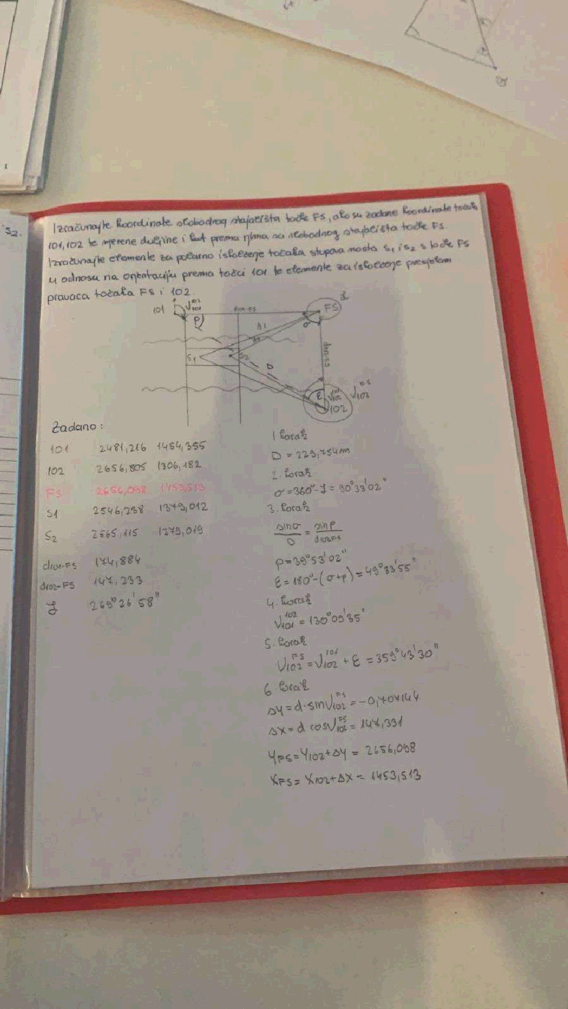 Izračunajte koordinate slobodnog stajališta točke FS, ako su zadane koordinate točaka
101, 102 te mjerene duljine i kut prema njima sa slobodnog stajališta točke FS.
Izračunajte elemente za polarno iskolčenje točaka stupova mosta S1 i S2 s točke FS
u odnosu na orijentaciju prema točci 101 te elemente za iskolčenje presjekom
pravaca točaka FS i 102.
101
FS
S1
D
102
Zadano:
101 2481,216 1454,355
102 2656,805 1306,182
FS 2656,098 1453,513
S1 2546,298 1379,012
S2 2565,115 1279,019
d101-FS 174,884
d102-FS 147,333
269°26'58"
1. korak
D = 229,754m
2. korak
σ = 360° - γ = 90°33'02"
3. korak
sinσ / D = sinρ / d102-FS
ρ = 39°53'02"
ε = 180° - (σ+ρ) = 49°33'55"
4. korak
ν101 102 = 130°09'35"
5. korak
ν102 FS = ν102 101 + ε = 359°43'30"
6 korak
Δy = d·sinν102 FS = -0,707144
Δx = d cosν102 FS = 147,331
YFS = Y102 + Δy = 2656,098
XFS = X102 + Δx = 1453,513